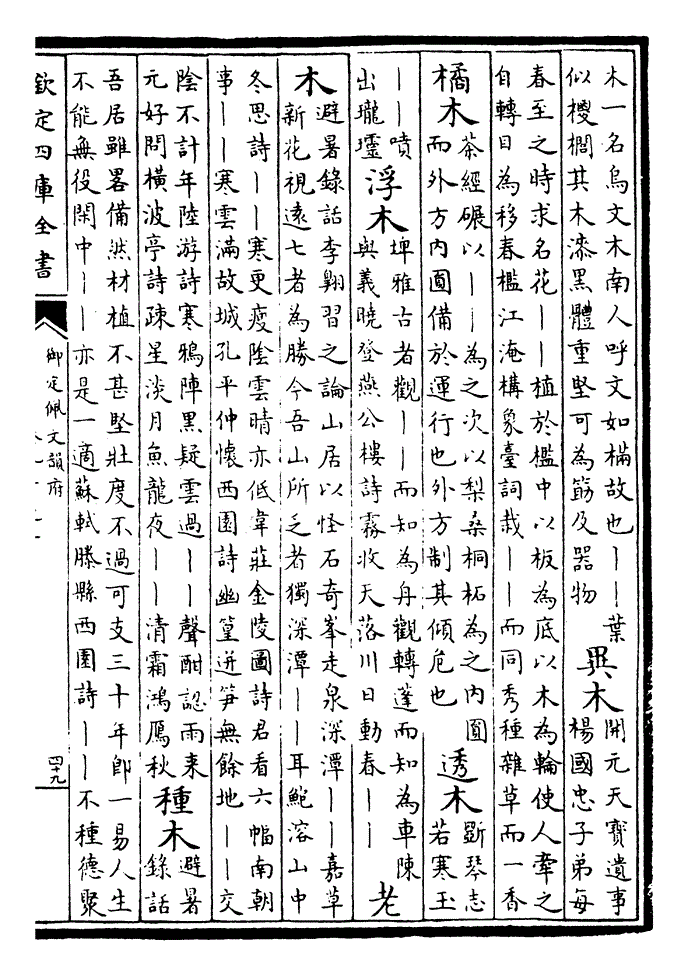 木一名烏文木南人呼文如樠故也——葉
似椶櫚其木漆黒體重堅可為筯及器物
異木
開元天寶遺事
楊國忠子弟每
春至之時求名花——植於檻中以板為底以木為輪使人牽之
自轉目為移春檻江淹構象臺詞栽——而同秀種雜草而一香
橘木
茶經碾以——為之次以梨桑桐柘為之内圓
而外方内圓備於運行也外方制其傾危也
透木
斵琴志
若寒玉
——噴
出瓏
浮木
埤雅古者觀——而知為舟觀轉蓬而知為車陳
與義曉登燕公樓詩霧收天落川日動春——
老
木
避暑錄話李翺習之論山居以怪石奇峯走泉深潭——嘉草
新花視遠七者為勝今吾山所乏者獨深潭——耳鮑溶山中
冬思詩——寒更瘦陰雲晴亦低韋莊金陵圖詩君看六幅南朝
事——寒雲滿故城孔平仲懷西園詩幽篁迸笋無餘地——交
陰不計年陸游詩寒鴉陣黒疑雲過——聲酣認雨来
元好問橫波亭詩疎星淡月魚龍夜——清霜鴻鴈秋
種木
避暑
錄話
吾居雖畧備然材植不甚堅壯度不過可支三十年即一易人生
不能無役閑中——亦是一適蘇軾滕縣西園詩——不種德聚
欽定四庫全書
御定佩文韻府
四十九